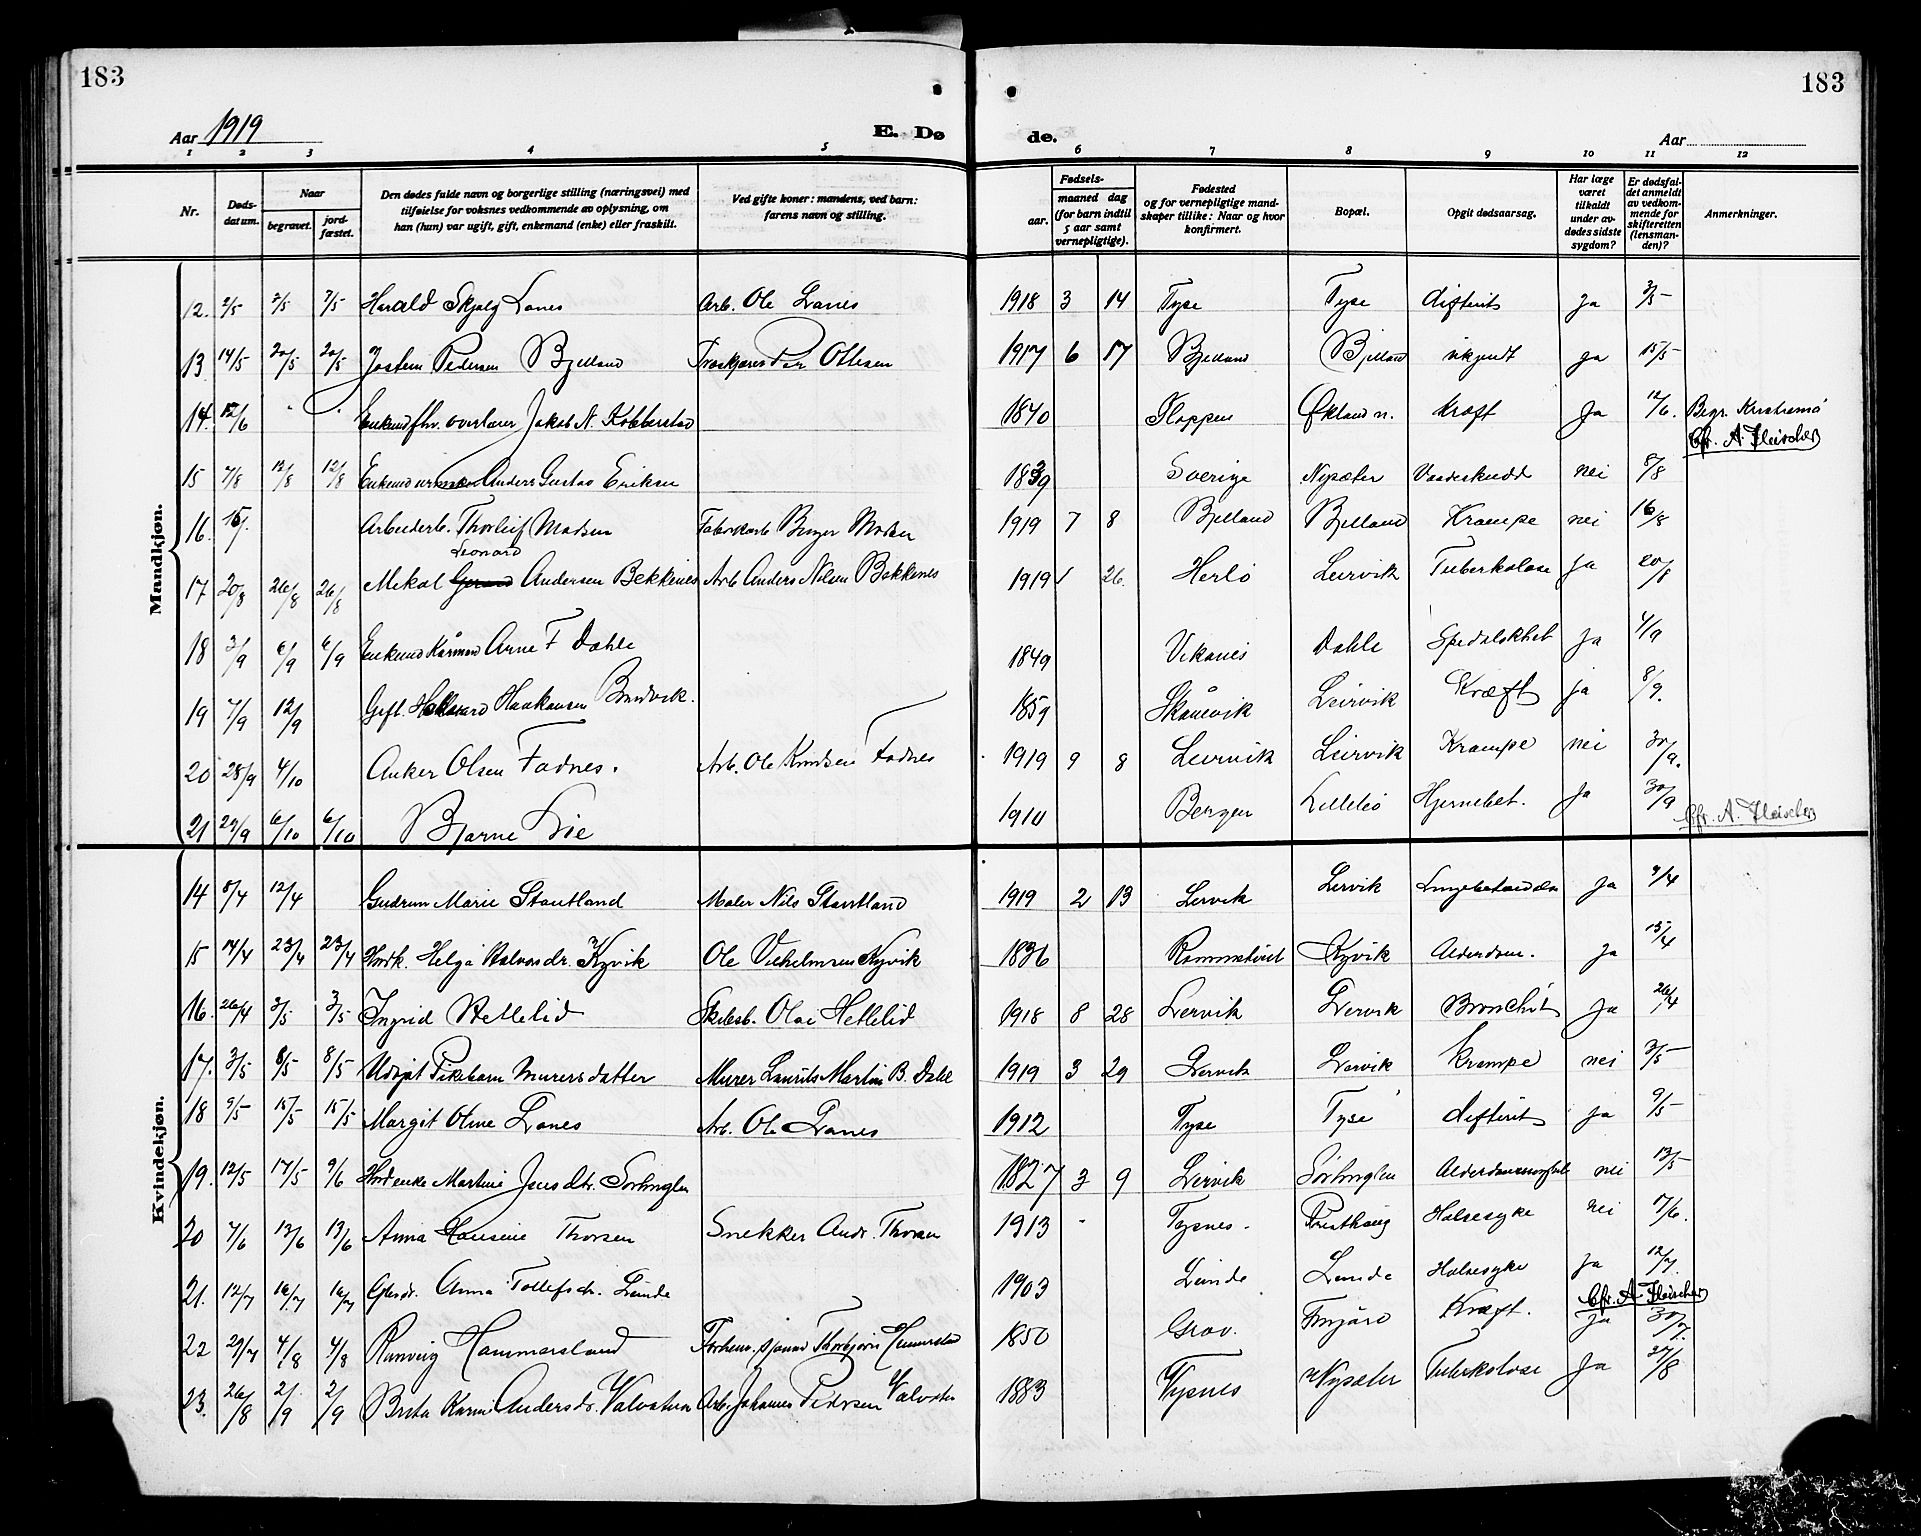 183
183
Aar 1919
E. Dø
de.
Aar
1 2 3 4 5 6 7 8 9 10 11 12
Nr.
Døds-
datum.
Naar
begravet.
jord-
fæstet.
Den dødes fulde navn og borgerlige stilling (næringsvei) med
tilføielse for voksnes vedkommende av oplysning, om
han (hun) var ugift, gift, enkemand (enke) eller fraskilt.
Ved gifte koner: mandens, ved barn:
farens navn og stilling.
Fødsels-
aar.
maaned dag
(for barn indtil
5 aar samt
vernepligtige).
Fødested
og for vernepligtige mand-
skaper tillike: Naar og hvor
konfirmert.
Bopæl.
Opgit dødsaarsag.
Har læge
været
tilkaldt
under av-
dødes sidste
sygdom?
Er dødsfal-
det anmeldt
av vedkom-
mende for
skifteretten
(lensman-
den)?
Anmerkninger.
Mandkjøn.
12. 2/5 7/5 7/5 Harald Skjelg Lanes Arb. Ole Lanes 1918 3 14 Tyse Tyse difterit ja 3/5
13. 14/5 20/5 20/5 Jostein Pedersen Bjelland Ottesen 1917 6 17 Bjelland Bjelland ukjendt ja 15/5
14. 12/6 " " Enkemd fhv. overlærer Jakob N. Kobberstad 1840 Økland Kræft Ja 12/6. Begr. Kristiansø
Cfr. A. Fleischer
15 7/8 12/8 12/8 Enkemd urmaker Anders Gustav Eriksen 1839 Sverige Nysæter Vaadeskudd nei 8/8
16. 15/7. Arbeiderb. Thorleif Madsen Fabrikarb Birger Madsen 1919 7 8 Bjelland Bjelland Krampe nei 16/8
Leonard
17 20/8 26/8 26/8 Mikal Andersen Bekkenes Arb Anders Nilsen Bekkenes 1919 1 26. Herlø Leirvik Tuberkolose ja 20/8
18 3/9 6/9 6/9 Enkemd Kårmd Arne F Dahle 1849 Vikanes Dahle Spedalskhet ja 4/9
19 7/9 12/9 Gift. Haakonsen Bandvik. 1859 Skånevik Leirvik Kræft ja 8/9.
20 28/9 4/10 Anker Olsen Fadnes. Arb. Ole Knudsen Fadnes 1919 9 8 Leirvik Leirvik Krampe nei 30/9.
21 29/9 6/10 6/10 Bjarne 1910 Bergen Litlebø Hjernebet. Ja 30/9
Cfr. A. Fleischer
Kvindekjøn.
14 8/4 12/4 Gudrun Marie Stautland Maler Nils Stautland 1919 2 13 Lervik Lervik Lungebetændelse ja 9/4
15 14/4 23/4 23/4 Hmdk. Helga Halvorsdr. Kyvik Ole Vilhelmsen Kyvik 1836 Kyvik Alderdom. ja 15/4
16. 26/4 3/5 3/5 Ingrid Hetlelid Skibsb. Olai Hetlelid 1918 8 28 Lervik Lervik Bronchit ja 26/4
17. 3/5 8/5 8/5 Udøpt Pikebarn Murersdatter Murer Laurits Martin B. Dale 1919 3 29 Lervik Lervik Krampe nei 3/5
18 9/5 15/5 15/5 Margit Oline Lanes Arb. Ole Lanes 1912 Tyse Tyse difterit ja 9/5
19. 12/5 17/5 9/6 Hmdenke Martine Jensdtr. 1827 3 9 Lervik nei 13/5
20 7/6 13/6 13/6 Anna Hansine Thorsen Snekker Andr. Thorsen 1913 " Tysnes. Presthaug Halsesyke nei 17/6.
21. 12/7 16/7 16/7 Anna Tollefsdr. Lunde 1903 Lunde Lunde Halsesyke ja 12/7.
Cfr. A Fleischer
22 29/7 4/8 4/8 Ranveig Hammersland Thorbjørn 1850 Grov. Kræft. ja 30/7.
23. 26/8 2/9 2/9 Brita Karin Andersdr. Valvatna Arb. Johannes Pedersen Valvatn 1883 Tysnes Nysæter Tuberkolose Ja 27/8